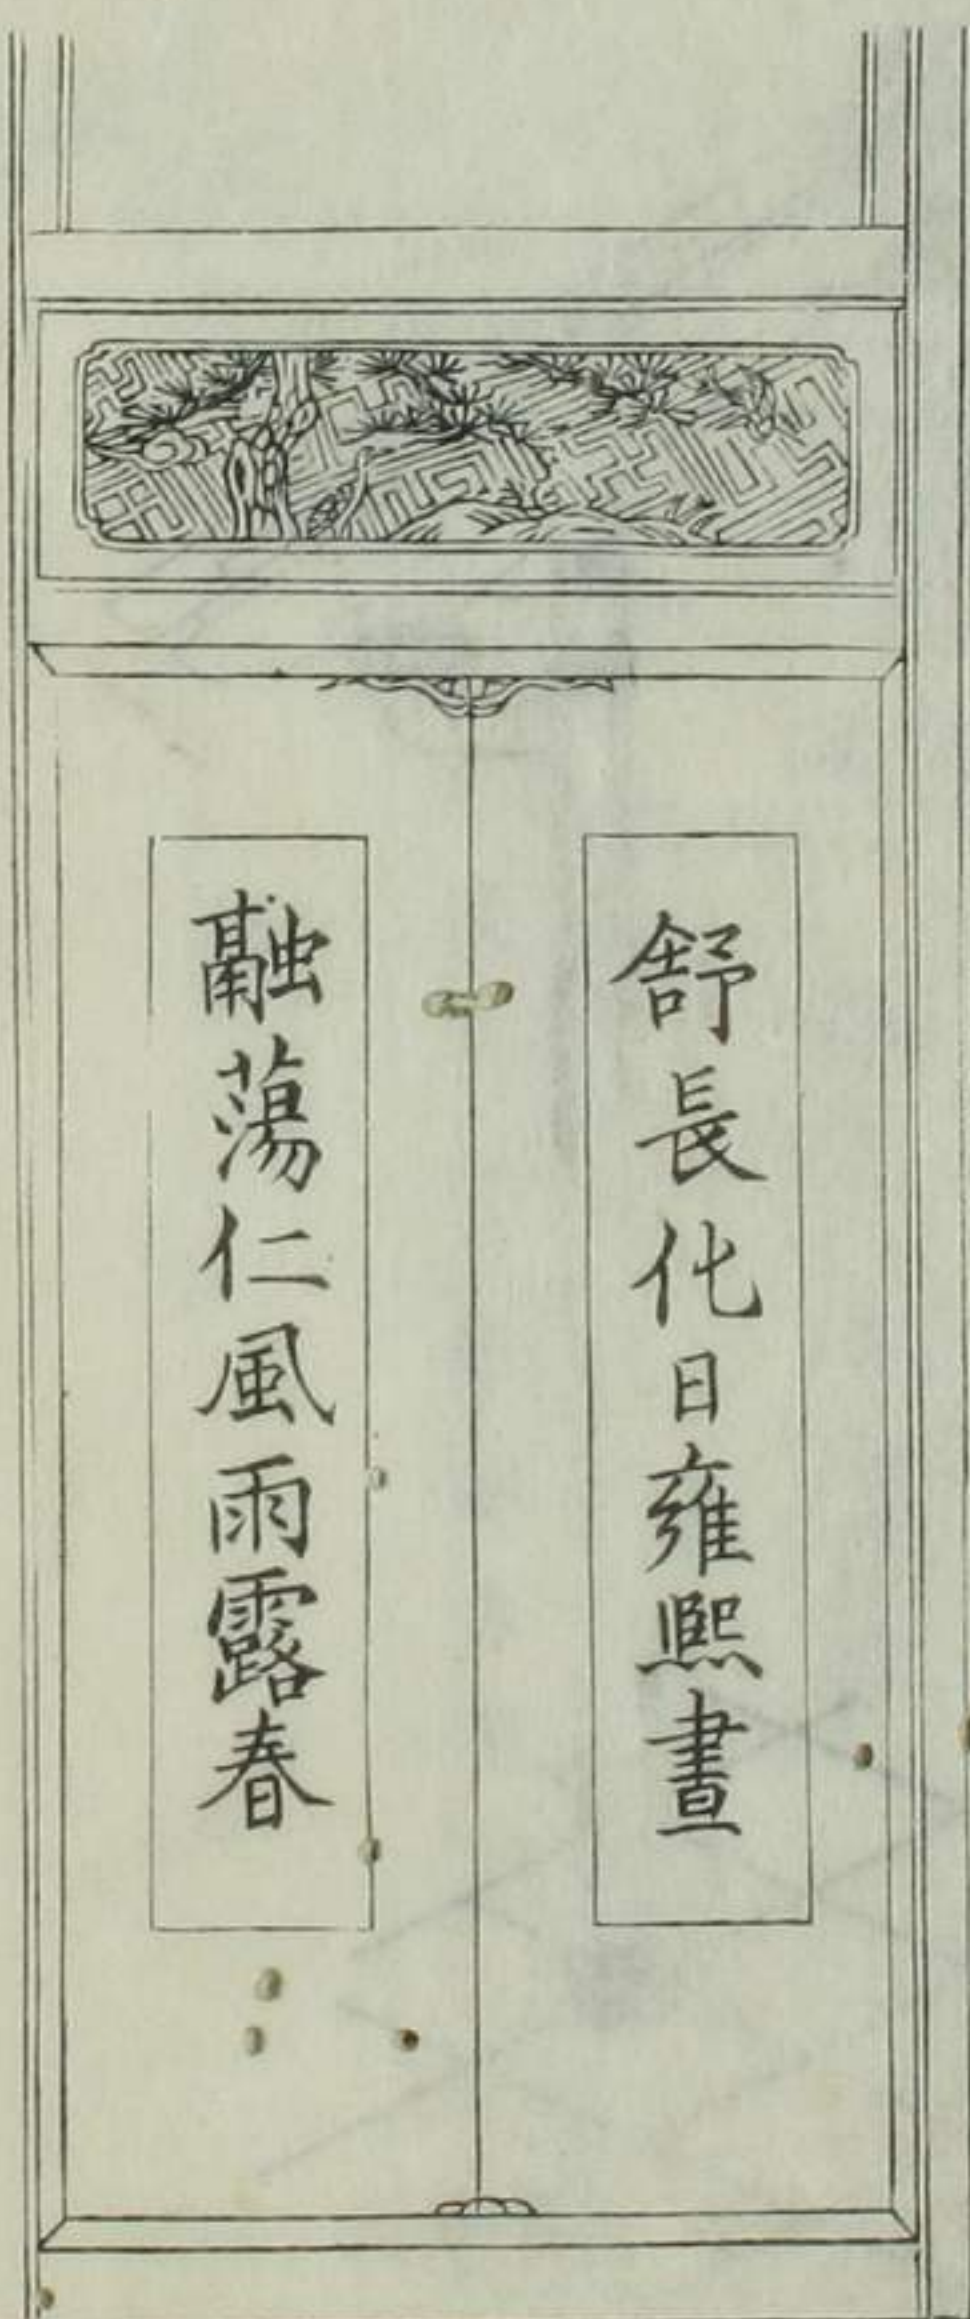 舒長化日雍熙晝
融蕩仁風雨露春